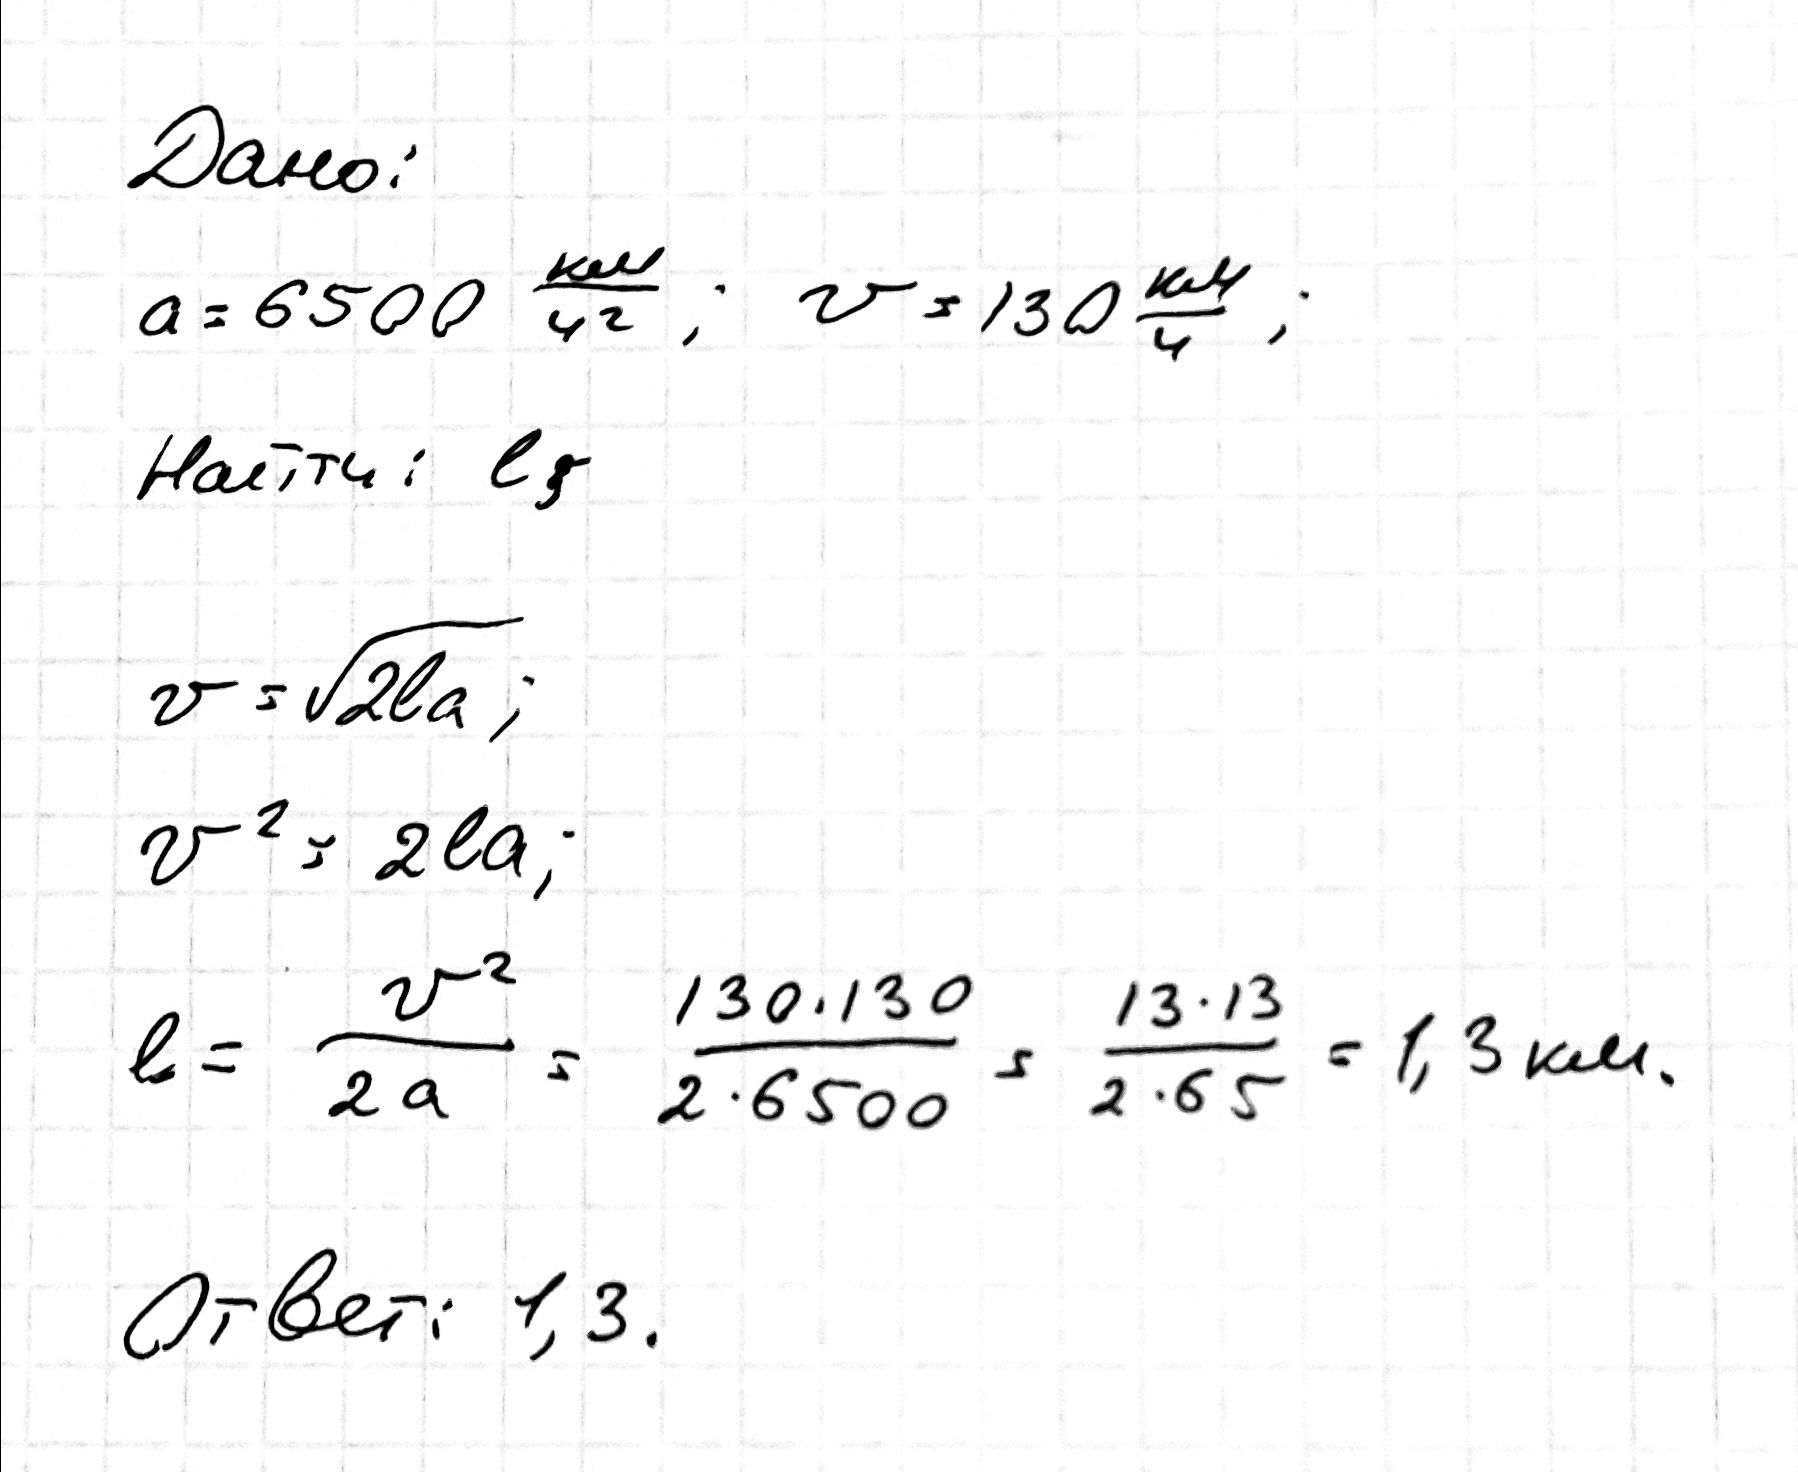 Дано:
a = 6500 км/ч²; v = 130 км/ч;
Найти: l;
v = √2la;
v² = 2la;
l = v²/2a = 130·130/2·6500 = 13·13/2·65 = 1,3 км.
Ответ: 1,3.